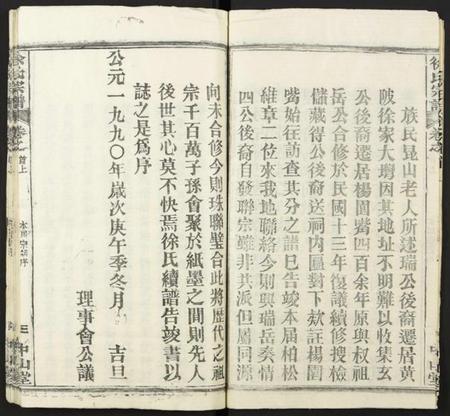 徐氏宗譜
族民昆山老人所述瑞公後裔遷居黃
陂徐家大塆因其地址不明難以收集玄
公後裔遷居楊園嘴四百余年原與权祖
岳公合修於民國十三年復議續修搜檢
儲藏得公後裔送祠内匾對下欵註楊園
嘴始往訪查其分之譜已告竣本屆柏松
維章二位來我地聯絡今則與瑞岳奏情
四公後裔自發聯宗雖非共派但屬同源
中山堂
向未合修今則珠聯璧合此將歷代之祖
宗千百萬子孫會聚於紙墨之間則先人
後世其心莫不快焉徐氏續譜告竣書以
誌之是爲序
公元一九九〇年嵗次庚午季冬月 吉旦
理事會公議
首上
三 中山堂